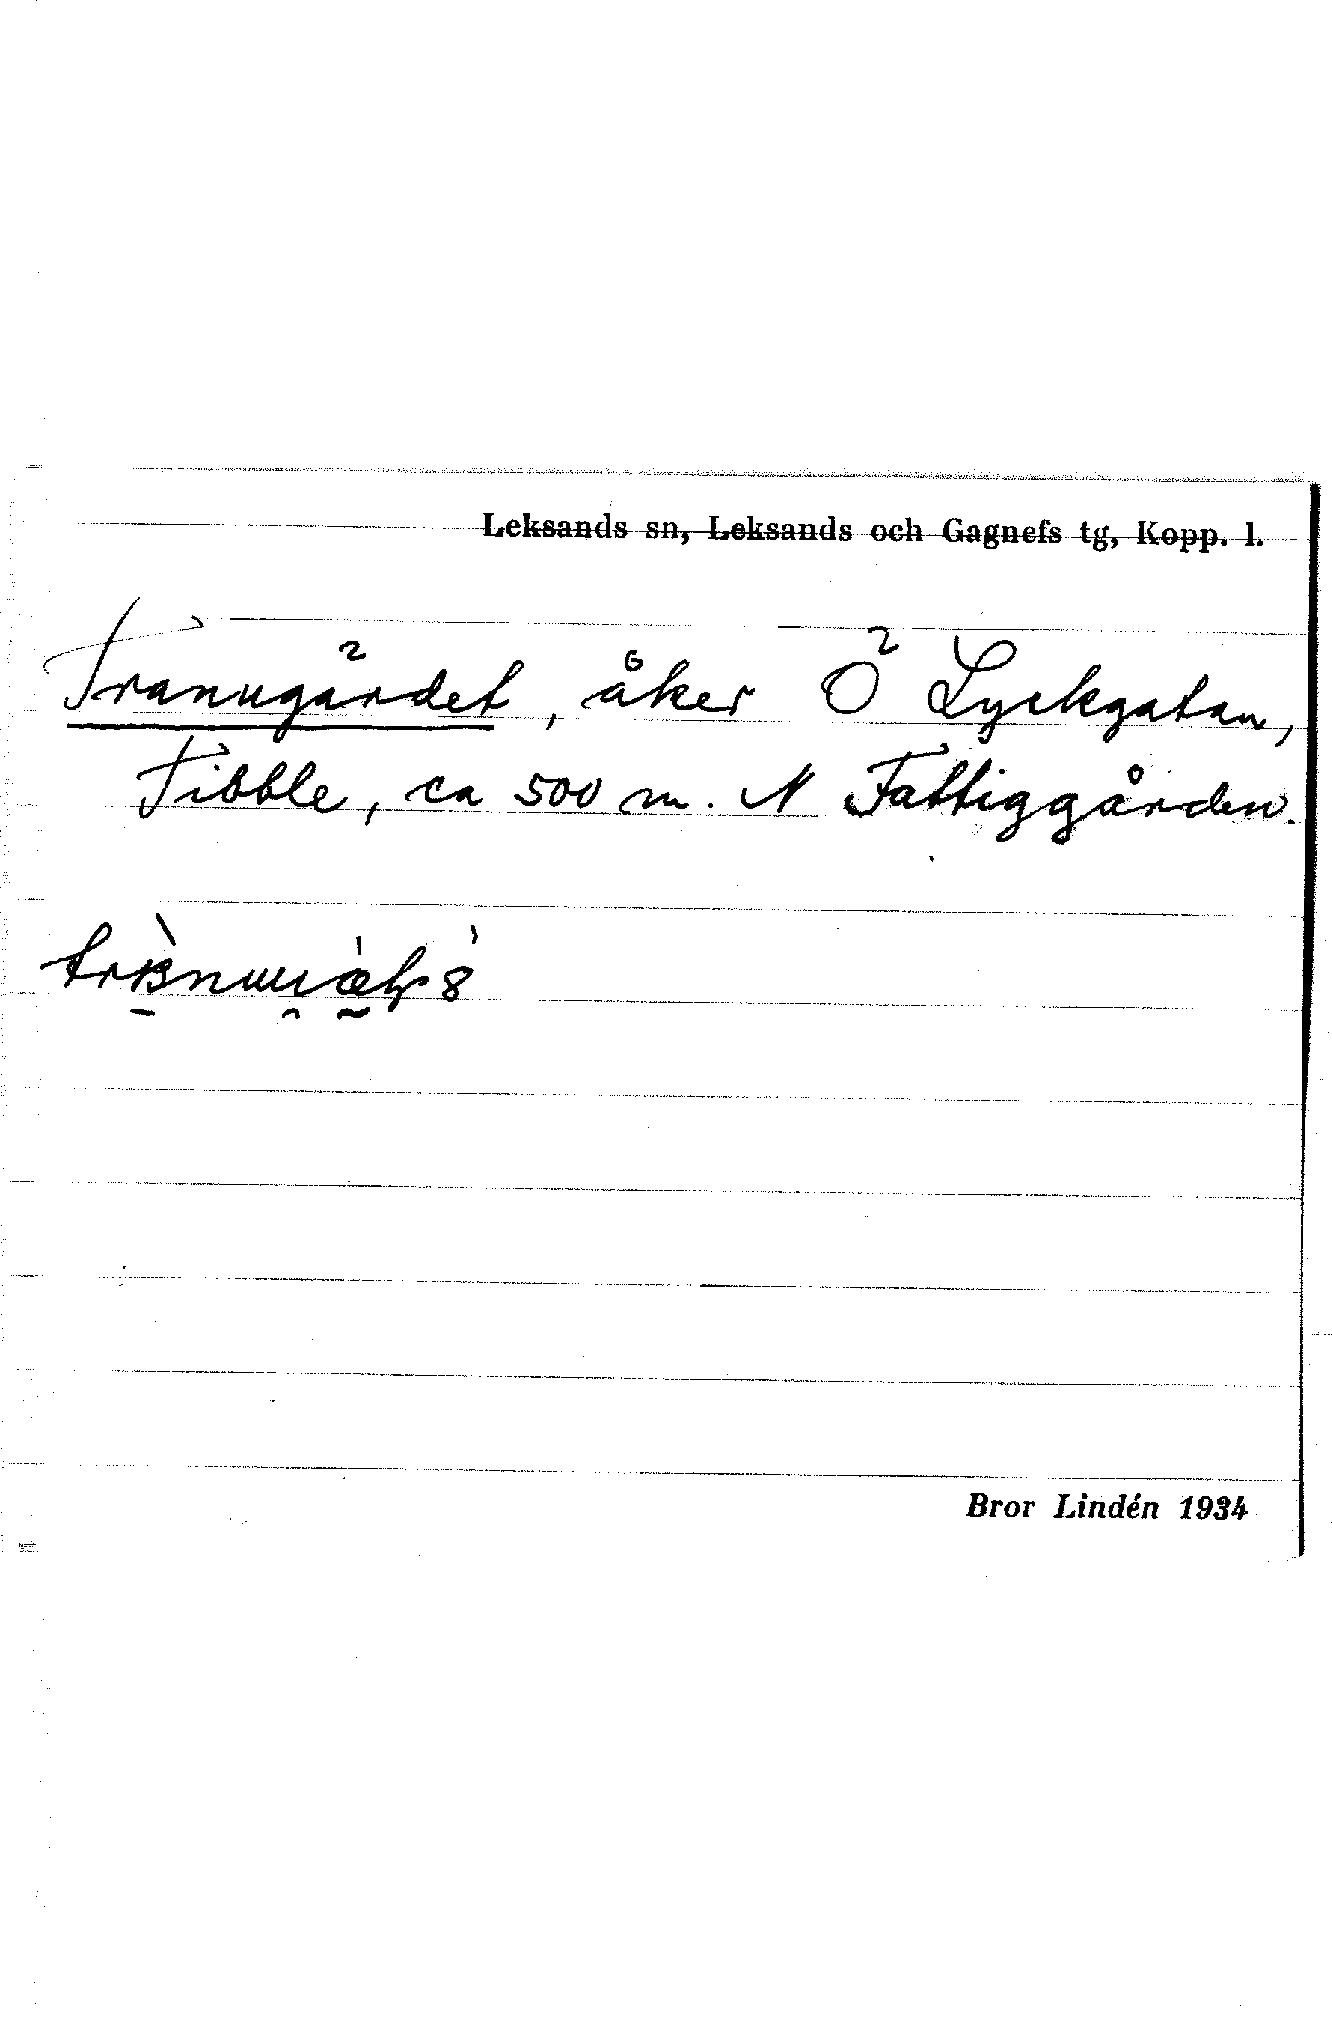 Leksands sn, Leksands och Gagnefs tg, Kopp. l.
Trannugärdet, åker Ö Lyckgatan,
Tibble, ca 500 m. N Fattiggården.
Bror Lindén 1934